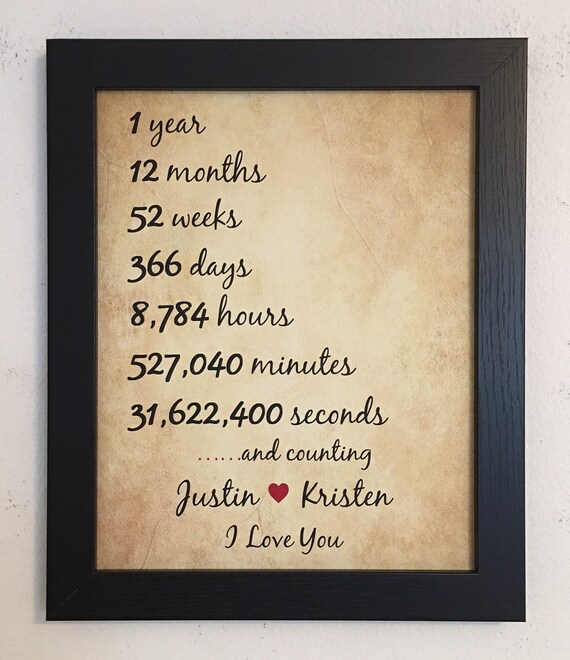 1 year
12 months
52 weeks
366 days
8,784 hours
527,040 minutes
31,622,400 seconds
......and counting
Justin ♥ Kristen
I Love You